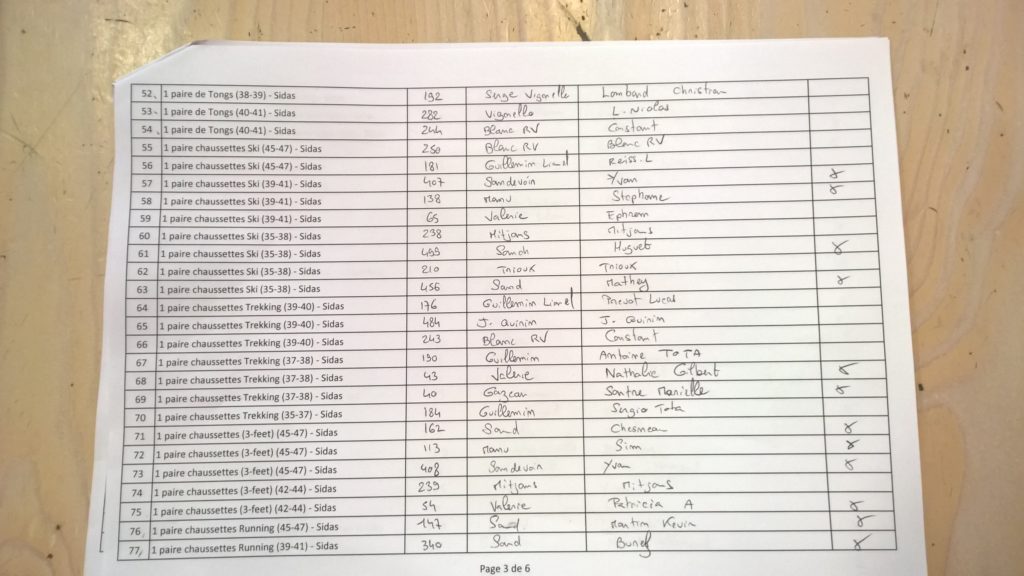 52 1 paire de Tongs (38-39) - Sidas 192 Serge Vigorelle Lombard Christian
53 1 paire de Tongs (40-41) - Sidas 282 Vigorello L. Nicolas
54 1 paire de Tongs (40-41) - Sidas 244 Blanc RV Constant
55 1 paire chaussettes Ski (45-47) - Sidas 250 Blanc RV Blanc RV
56 1 paire chaussettes Ski (45-47) - Sidas 181 Guillemin Lionel Reiss. L
57 1 paire chaussettes Ski (39-41) - Sidas 407 Sandevoin Yvan 8
58 1 paire chaussettes Ski (39-41) - Sidas 138 Manu Stephane 8
59 1 paire chaussettes Ski (39-41) - Sidas 65 Valerie Ephrem
60 1 paire chaussettes Ski (35-38) - Sidas 238 Mitjans Mitjans
61 1 paire chaussettes Ski (35-38) - Sidas 499 Huguet 8
62 1 paire chaussettes Ski (35-38) - Sidas 210 Trioux Trioux
63 1 paire chaussettes Ski (35-38) - Sidas 456 Sand Mathey 8
64 1 paire chaussettes Trekking (39-40) - Sidas 176 Guillemin Lionel Prevot Lucas
65 1 paire chaussettes Trekking (39-40) - Sidas 484 J. Quinim J. Quinim
66 1 paire chaussettes Trekking (39-40) - Sidas 243 Blanc RV Constant
67 1 paire chaussettes Trekking (37-38) - Sidas 190 Guillemin Antoine TOTA
68 1 paire chaussettes Trekking (37-38) - Sidas 43 Valerie Nathalie Gilbert 8
69 1 paire chaussettes Trekking (37-38) - Sidas 40 Gazeau Santre Marielle 8
70 1 paire chaussettes Trekking (35-37) - Sidas 184 Guillemin Sergio Tota
71 1 paire chaussettes (3-feet) (45-47) - Sidas 162 Sand Chesneau 8
72 1 paire chaussettes (3-feet) (45-47) - Sidas 113 Manu Sim 8
73 1 paire chaussettes (3-feet) (45-47) - Sidas 408 Sandevoin Yvan 8
74 1 paire chaussettes (3-feet) (42-44) - Sidas 239 Mitjans Mitjans
75 1 paire chaussettes (3-feet) (42-44) - Sidas 54 Valerie Patricia A 8
76 1 paire chaussettes Running (45-47) - Sidas 147 Sand Martin Kevin 8
77 1 paire chaussettes Running (39-41) - Sidas 340 Sand 8
Page 3 de 6